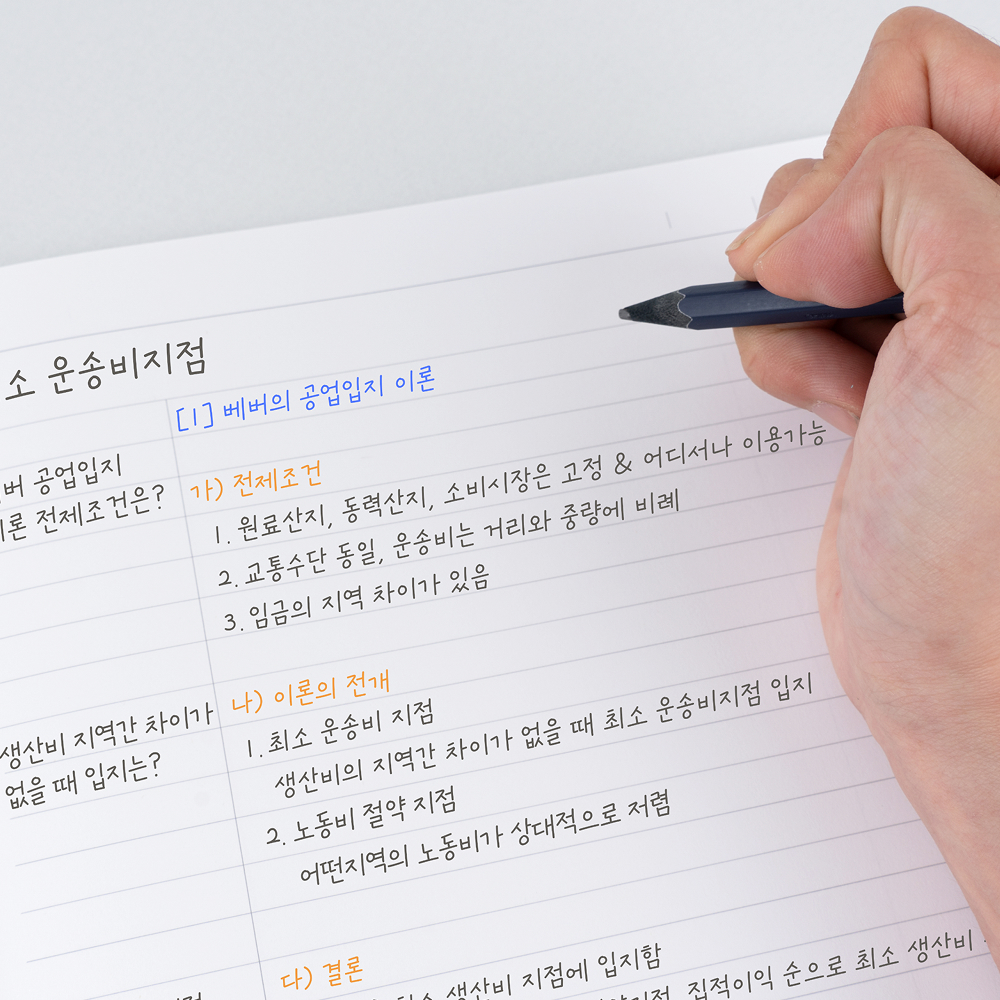 소 운송비지점
[1] 베버의 공업입지 이론
버 공업입지
이론 전제조건은?
가) 전제조건
1. 원료산지, 동력산지, 소비시장은 고정 & 어디서나 이용가능
2. 교통수단 동일, 운송비는 거리와 중량에 비례
3. 임금의 지역 차이가 있음
생산비 지역간 차이가
없을 때 입지는?
나) 이론의 전개
1. 최소 운송비 지점
생산비의 지역간 차이가 없을 때 최소 운송비지점 입지
2. 노동비 절약 지점
어떤지역의 노동비가 상대적으로 저렴
다) 결론
최소 생산비 지점에 입지함
집적이익 순으로 최소 생산비